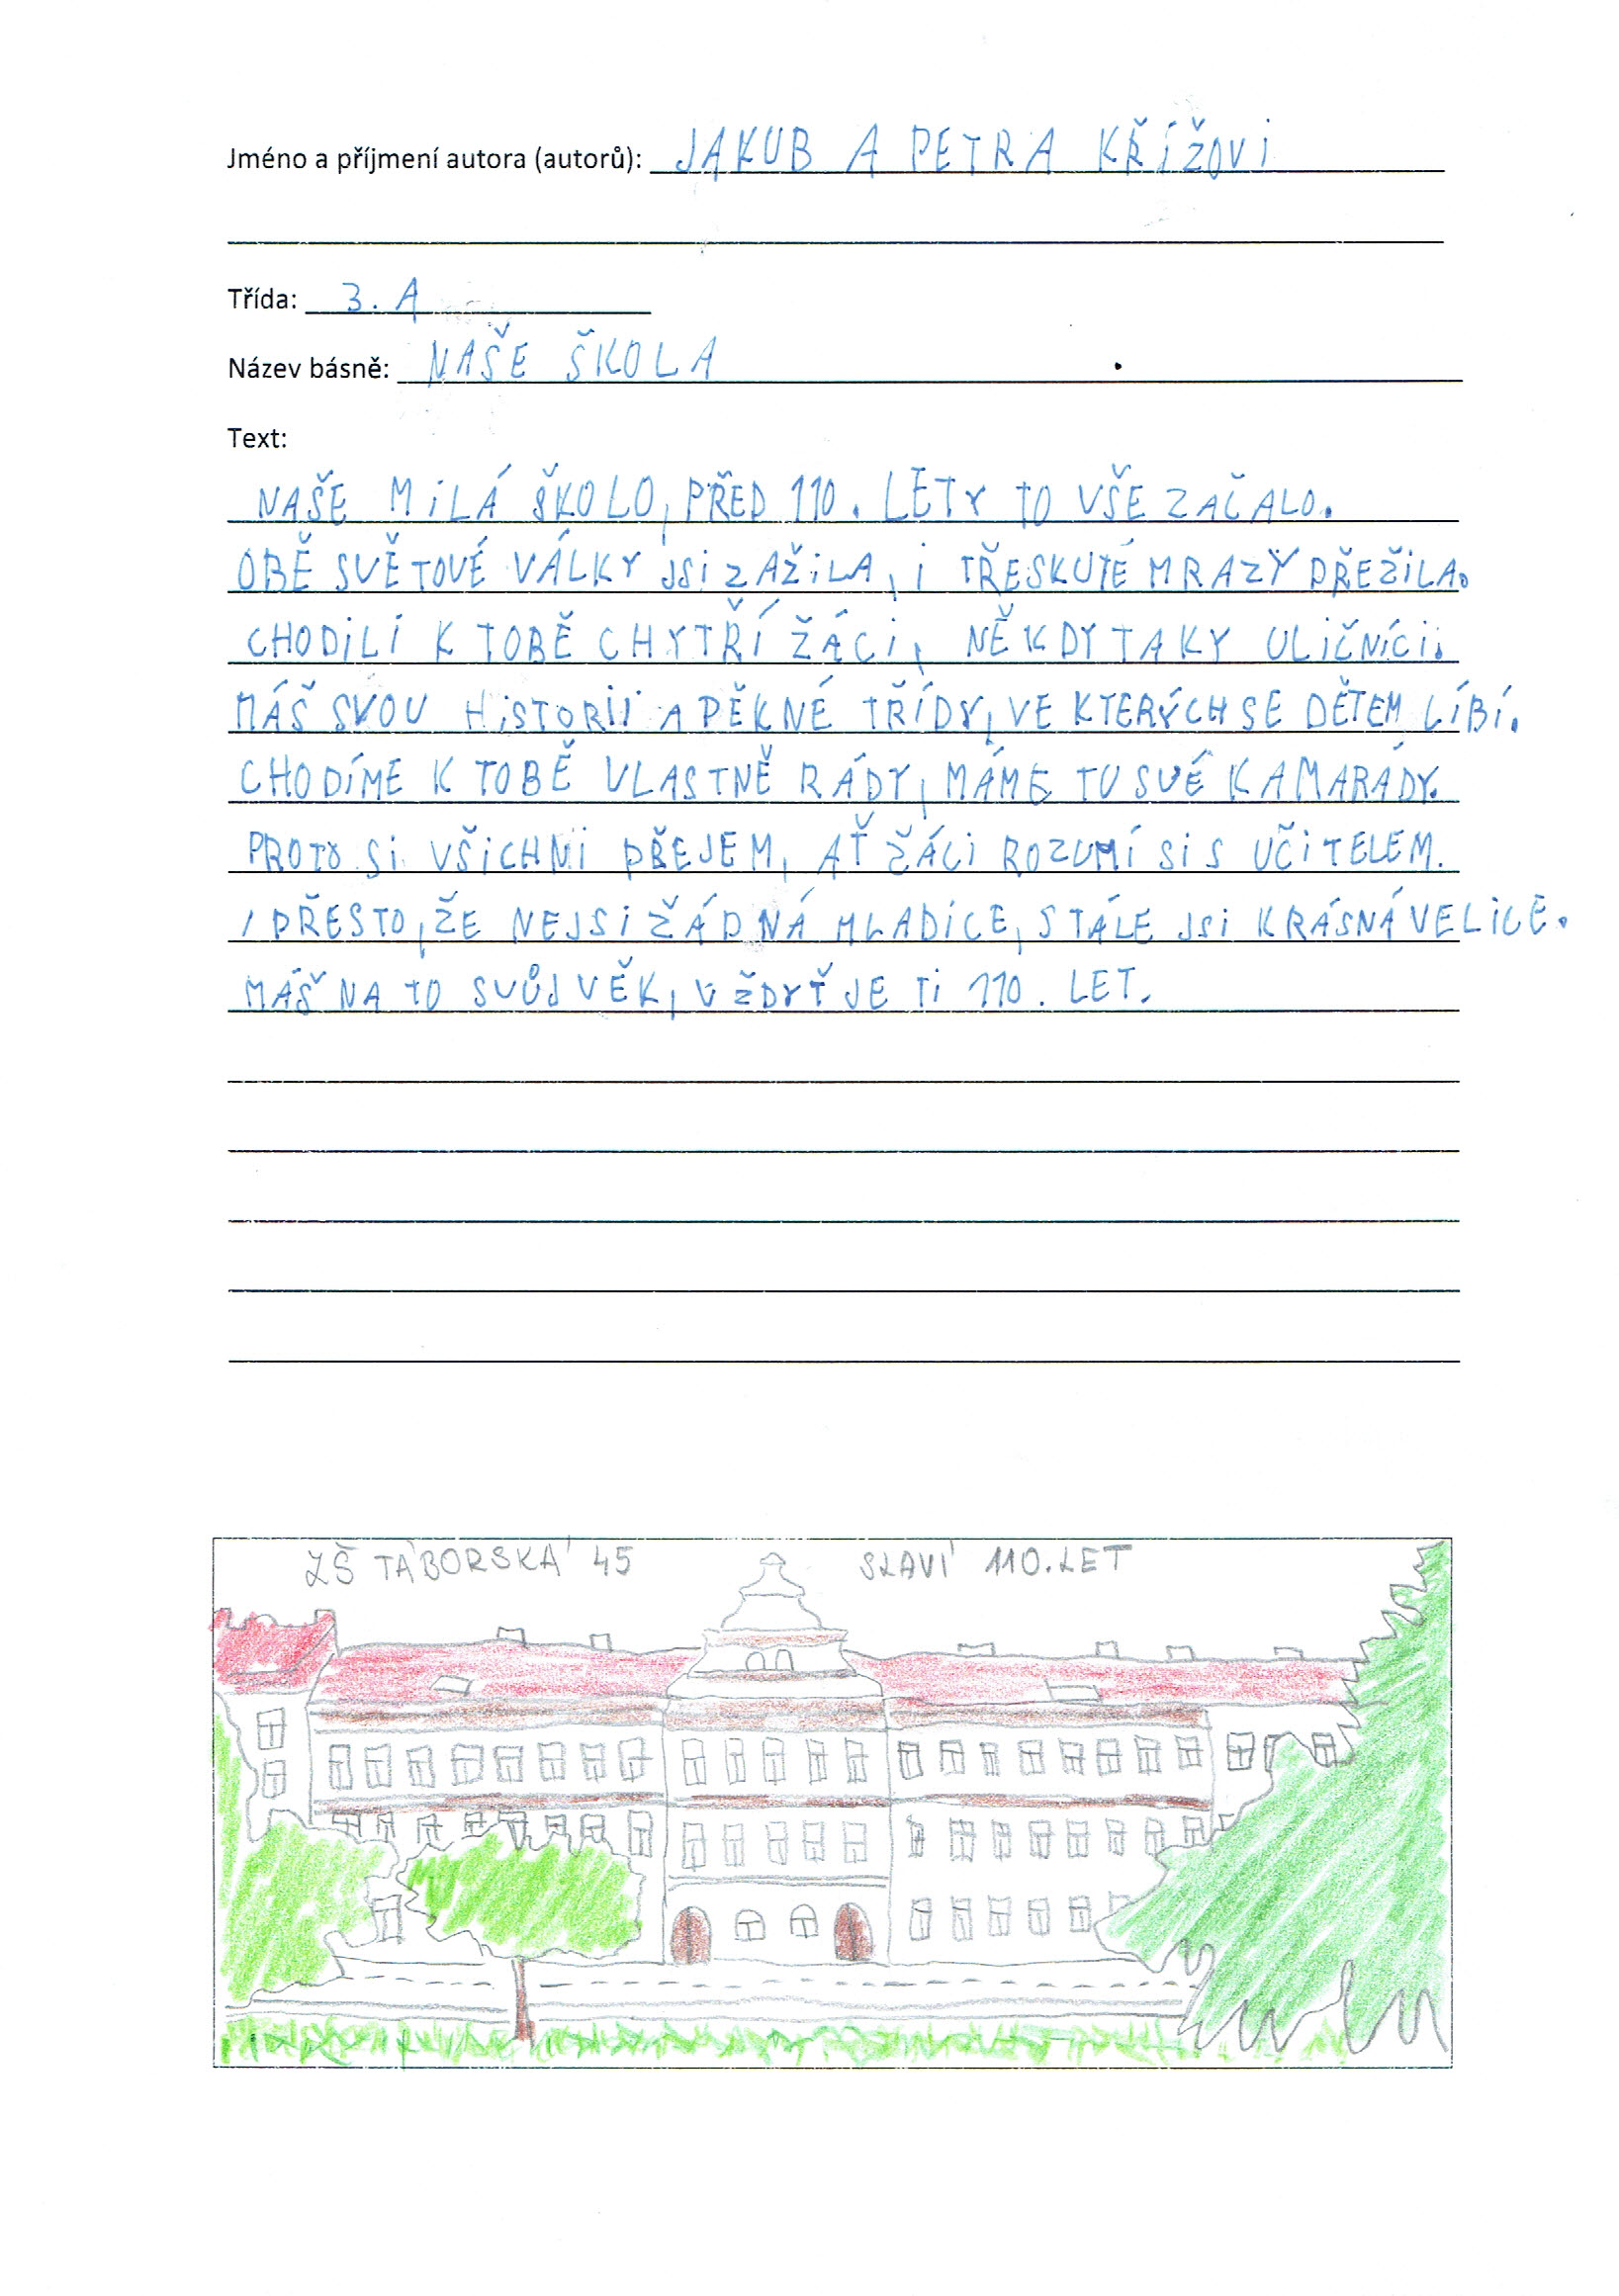 Jméno a příjmení autora (autorů): JAKUB A PETRA KŘÍŽOVI
Třída: 3. A
Název básně: NAŠE ŠKOLA
Text:
NAŠE MILÁ ŠKOLO, PŘED 110. LETY TO VŠE ZAČALO.
OBĚ SVĚTOVÉ VÁLKY JSI ZAŽILA, I TŘESKUTÉ MRAZY PŘEŽILA.
CHODILI K TOBĚ CHYTŘÍ ŽÁCI, NĚKDY TAKY ULIČNÍCI.
MÁŠ SVOU HISTORII A PĚKNÉ TŘÍDY, VE KTERÝCH SE DĚTEM LÍBÍ.
CHODÍME K TOBĚ VLASTNĚ RÁDY, MÁME TU SVÉ KAMARÁDY.
PROTO SI VŠICHNI PŘEJEM, AŤ ŽÁCI ROZUMÍ SI S UČITELEM.
I PŘESTO, ŽE NEJSI ŽÁDNÁ MLADICE, STÁLE JSI KRÁSNÁ VELICE.
MÁŠ NA TO SVŮJ VĚK, VŽDYŤ JE TI 110. LET.
ZŠ TÁBORSKÁ 45 SLAVÍ 110. LET